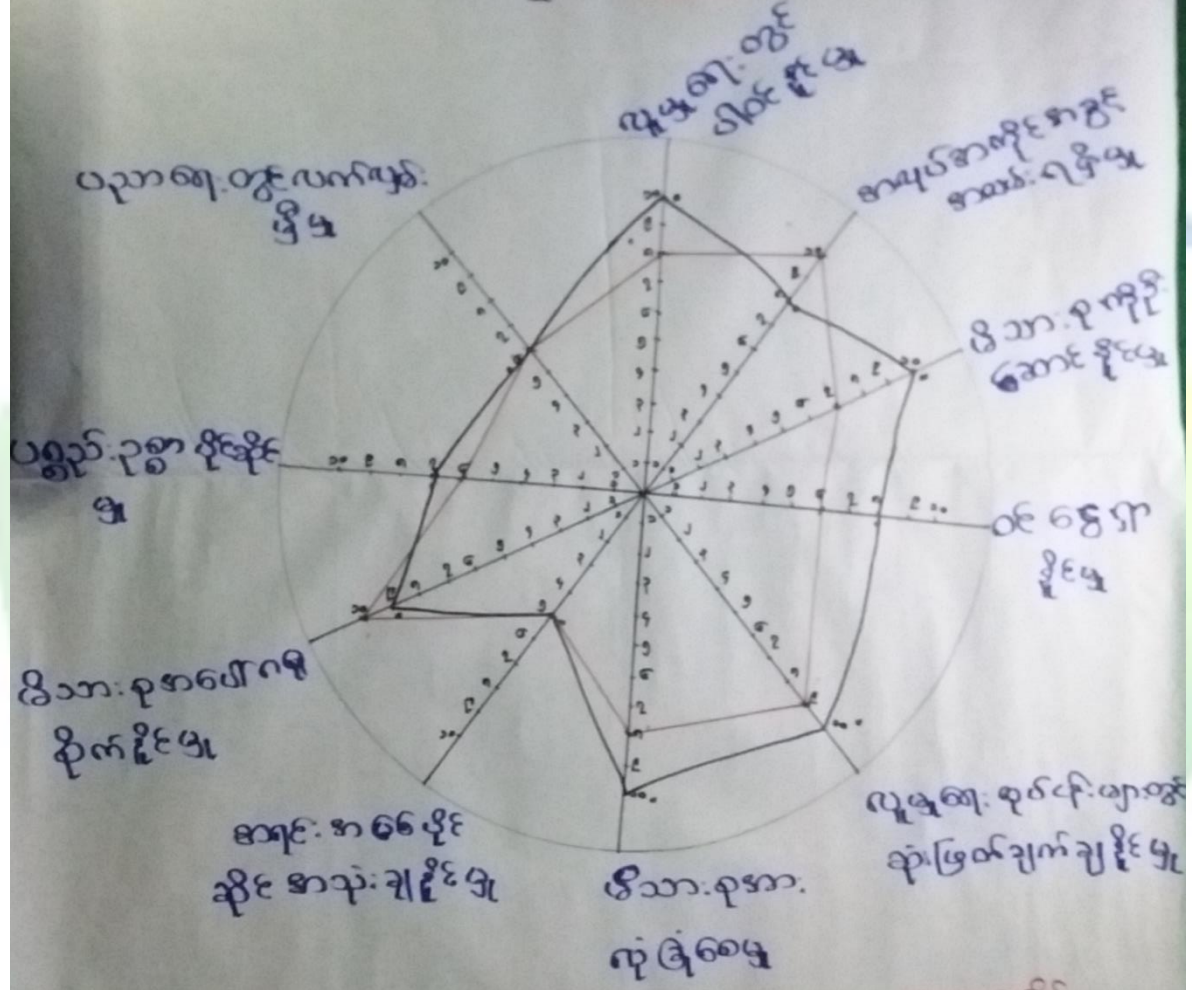 လူမှုရေးတွင်
ပါဝင်နိုင်မှု
အလုပ်အကိုင်အခွင့်
အလမ်းရရှိမှု
မိသားစုကိုဦး
ဆောင်နိုင်မှု
ဝင်ငွေရှာ
နိုင်မှု
လူမှုရေးလုပ်ငန်းများတွင်
ဆုံးဖြတ်ချက်ချနိုင်မှု
မိသားစုအား
လုံခြုံစေမှု
အရင်းအမြစ်ပိုင်
ဆိုင်အသုံးချနိုင်မှု
မိသားစုအပေါ်ဂရု
စိုက်နိုင်မှု
ပစ္စည်းဥစ္စာပိုင်ဆိုင်
မှု
ပညာရေးတွင်လက်လှမ်း
မှီမှု